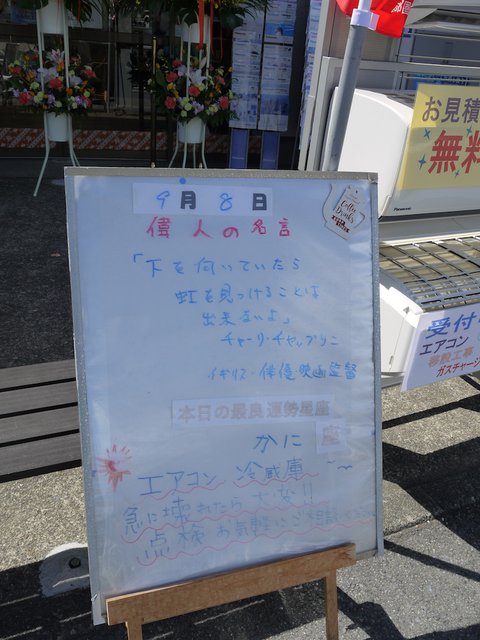 9月8日
偉人の名言
「下を向いていたら
虹を見つけることは
出来ないよ」
チャーリ・チャップリン
イギリス・俳優映画監督
本日の最良運勢星座
かに座
エアコン 冷蔵庫
急に壊れたら 大変!!
点検 お気軽にご相談ください
お見積
無料
Panasonic
受付
エアコン
移設工事
ガスチャージ